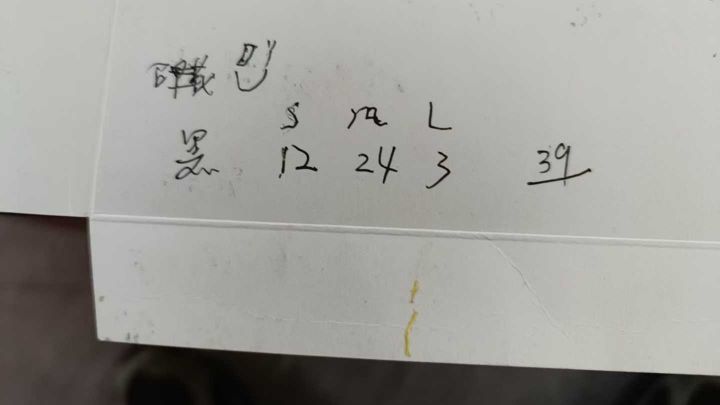 S M L
黑 12 24 3 39